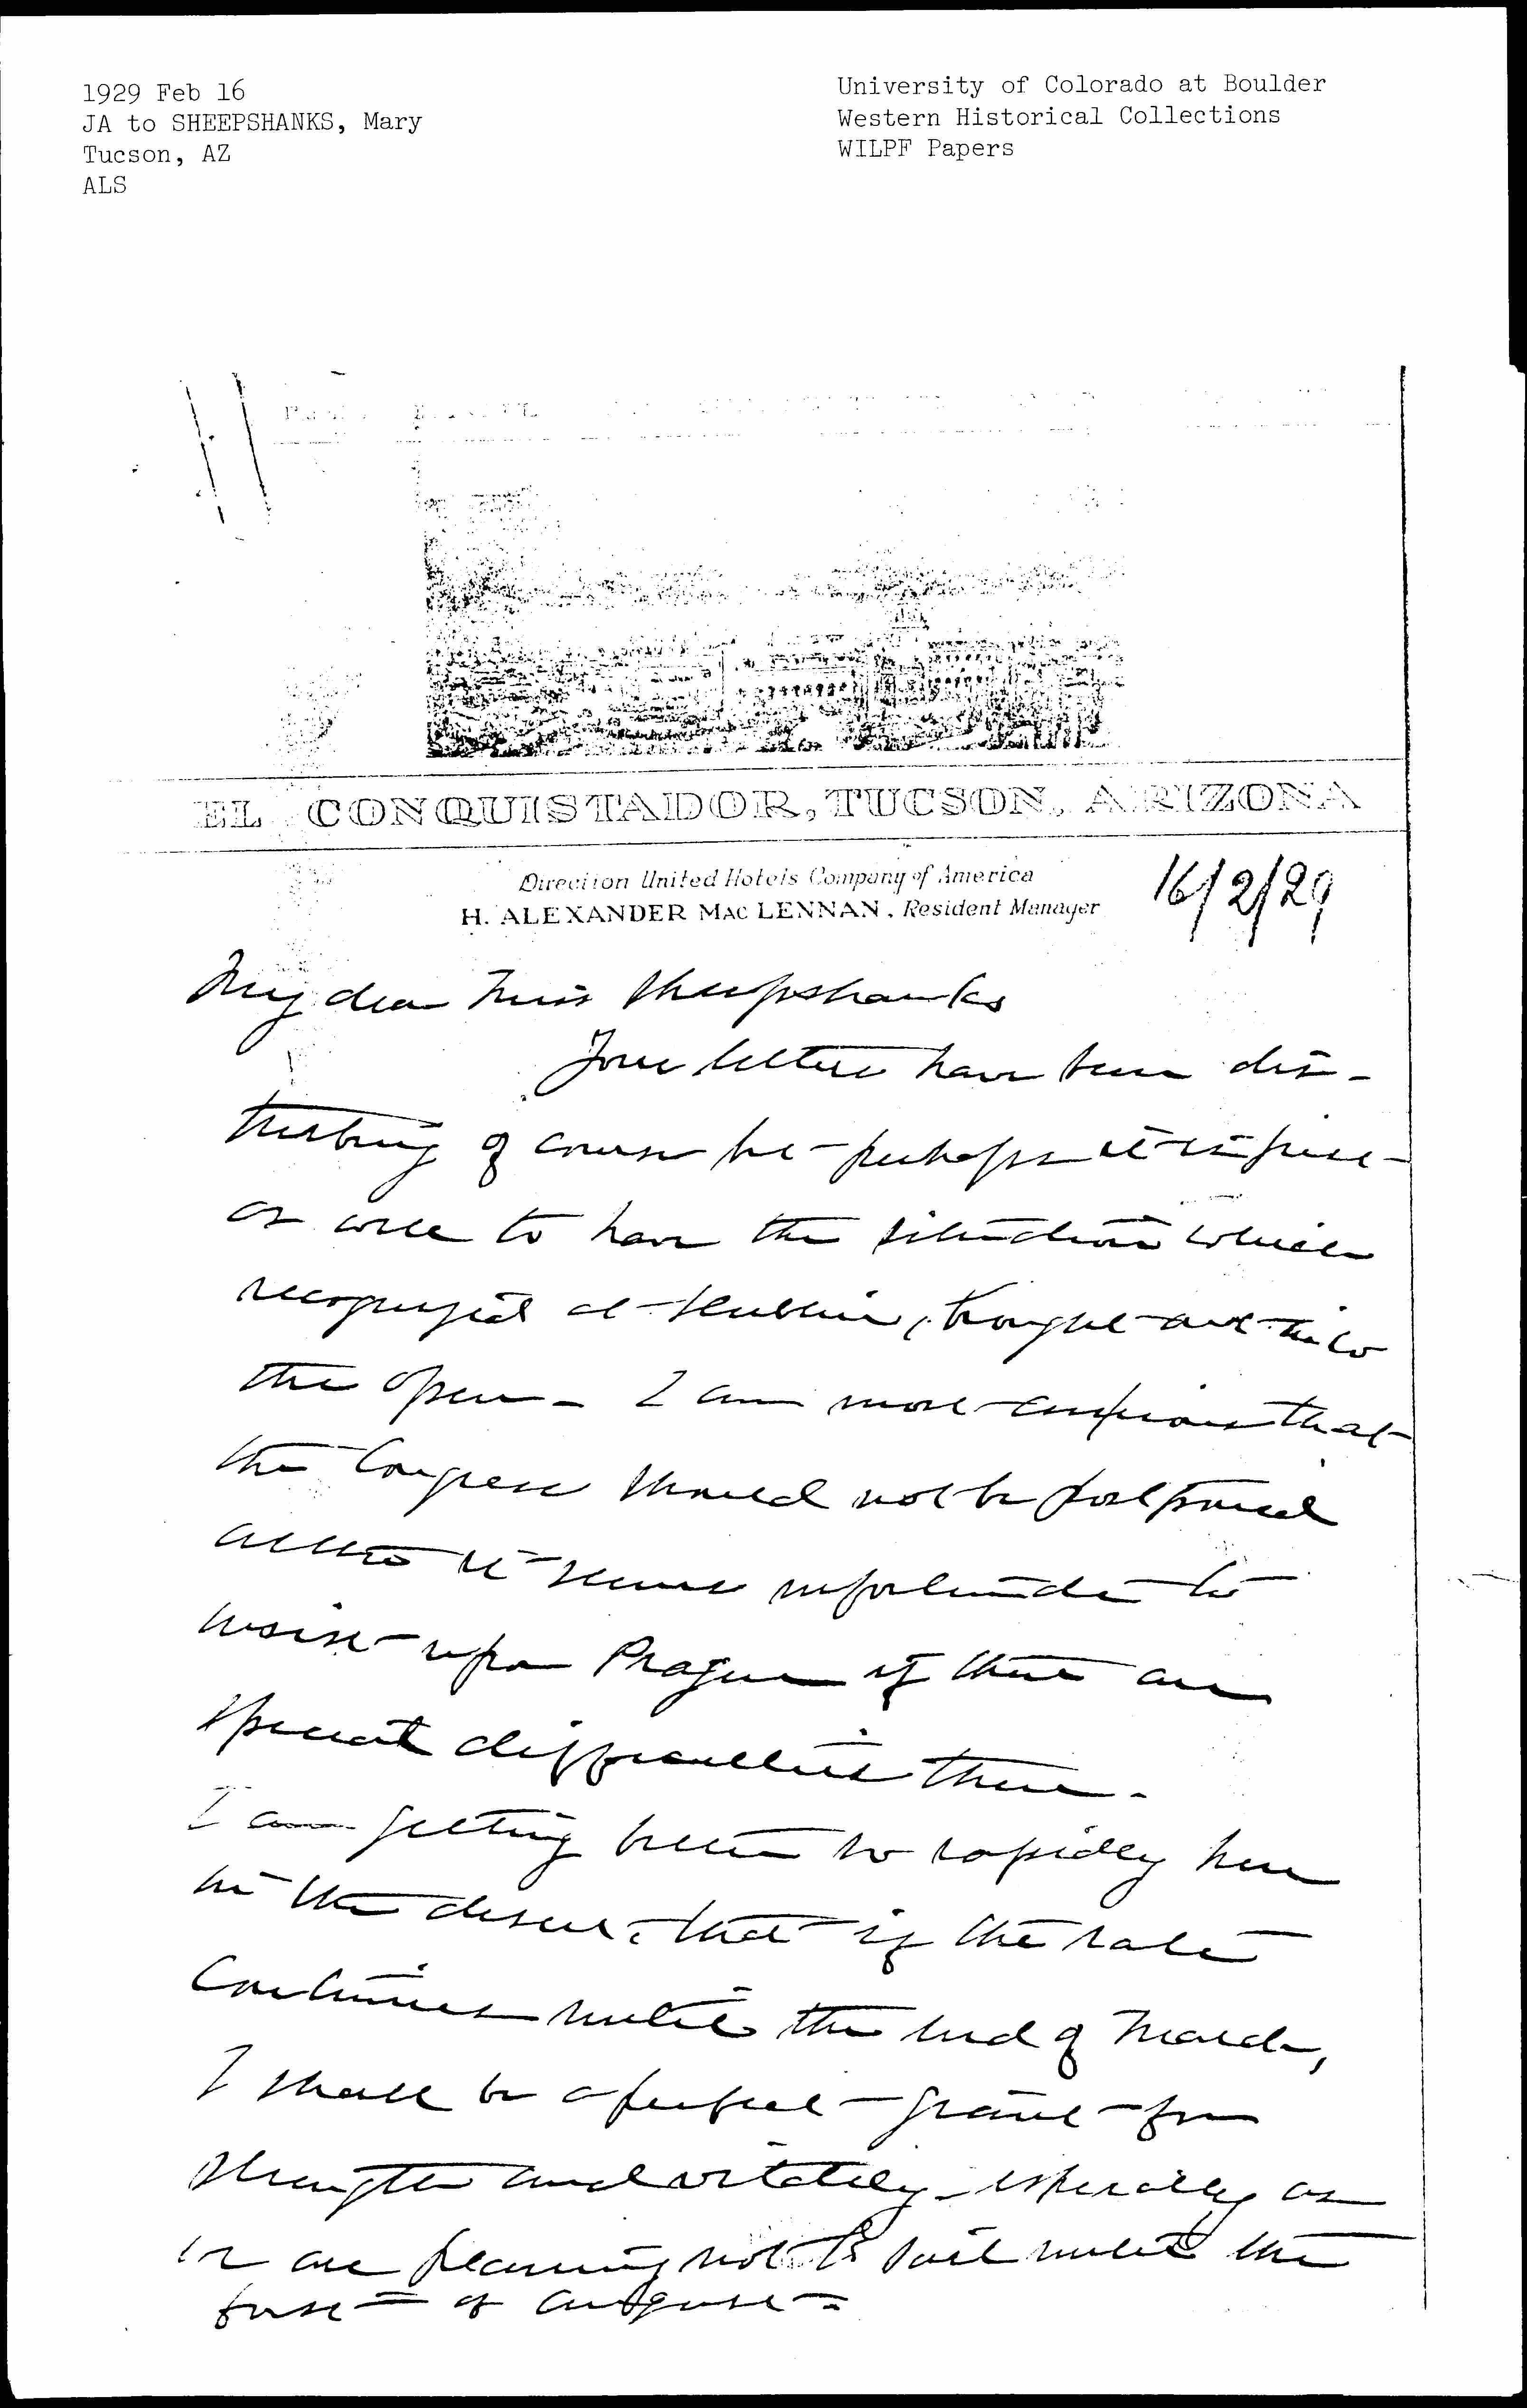 1929 Feb 16
JA to SHEEPSHANKS, Mary
Tucson, AZ
ALS
University of Colorado at Boulder
Western Historical Collections
WILPF Papers
EL CONQUISTADOR, TUCSON, ARIZONA
Direction United Hotels Company of America
H. ALEXANDER MAC LENNAN, Resident Manager
16/2/29
My dear Miss Sheepshanks
Your letters have been dis-
turbing of course but perhaps it is just
as well to have the situation which
recognized at Dublin, brought out into
the open – I am most anxious that
the Congress should not be postponed
altho it seems unfortunate to
insist upon Prague if there are
special difficulties there.
I am getting better so rapidly here
in the desert, that if the rate
continues until the end of March,
I shall be a perfect giant for
strength and vitality – especially as
we are planning not to sail until the
first of August –